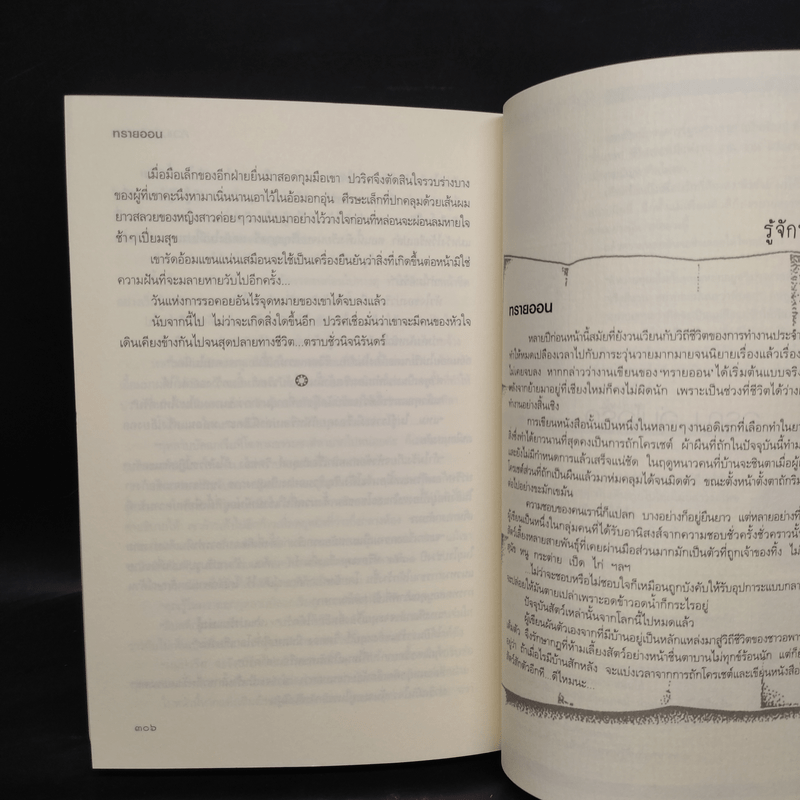 ทรายออน
เมื่อมือเล็กของอีกฝ่ายยื่นมาสอดกุมมือเขา ปวริศจึงตัดสินใจรวบร่างบาง
ของผู้ที่เขาคะนึงหามาเนิ่นนานเอาไว้ในอ้อมอกอุ่น ศีรษะเล็กที่ปกคลุมด้วยเส้นผม
ยาวสลวยของหญิงสาวค่อยๆ วางแนบมาอย่างไว้วางใจก่อนที่หล่อนจะผ่อนลมหายใจ
ช้าๆ เปี่ยมสุข
เขารัดอ้อมแขนแน่นเสมือนจะใช้เป็นเครื่องยืนยันว่าสิ่งที่เกิดขึ้นต่อหน้ามิใช่
ความฝันที่จะมลายหายวับไปอีกครั้ง...
วันแห่งการรอคอยอันไร้จุดหมายของเขาได้จบลงแล้ว
นับจากนี้ไป ไม่ว่าจะเกิดสิ่งใดขึ้นอีก ปวริศเชื่อมั่นว่าเขาจะมีคนของหัวใจ
เดินเคียงข้างกันไปจนสุดปลายทางชีวิต...ตราบชั่วนิจนิรันดร์
๓๐๖
รู้จัก
ทรายออน
หลายปีก่อนหน้านี้สมัยที่ยังวนเวียนกับวิถีชีวิตของการทำงานประจำ
ทำให้หมดเปลืองเวลาไปกับภาระวุ่นวายมากมายจนนิยายเรื่องแล้วเรื่อง
ไม่เคยจบลง หากกล่าวว่างานเขียนของ 'ทรายออน' ได้เริ่มต้นแบบจริง
หลังจากย้ายมาอยู่ที่เชียงใหม่ก็คงไม่ผิดนัก เพราะเป็นช่วงที่ชีวิตได้ว่าง
ทำงานอย่างสิ้นเชิง
การเขียนหนังสือนั้นเป็นหนึ่งในหลายๆ งานอดิเรกที่เลือกทำในยา
สิ่งซึ่งทำได้ยาวนานที่สุดคงเป็นการถักโครเชต์ ผ้าผืนที่ถักในปัจจุบันนี้ทำม
และยังไม่มีกำหนดการแล้วเสร็จแน่ชัด ในฤดูหนาวคนที่บ้านจะชินตาเมื่อผู้
โครเชต์ส่วนที่ถักเป็นผืนแล้วมาห่มคลุมได้จนมิดตัว ขณะตั้งหน้าตั้งตาถักริม
คงไปอย่างขะมักเขม้น
ความชอบของคนเรานี้ก็แปลก บางอย่างก็อยู่ยืนยาว แต่หลายอย่างที่
ผู้เขียนเป็นหนึ่งในกลุ่มคนที่ได้รับอานิสงส์จากความชอบชั่วครั้งชั่วคราวนั้
สัตว์เลี้ยงหลายสายพันธุ์ที่เคยผ่านมือส่วนมากมักเป็นตัวที่ถูกเจ้าของทิ้ง ไม่
สุนัข หนู กระต่าย เป็ด ไก่ ฯลฯ
...ไม่ว่าจะชอบหรือไม่ชอบใจก็เหมือนถูกบังคับให้รับอุปการะแบบกลา
จะปล่อยให้มันตายเปล่าเพราะอดข้าวอดน้ำก็กระไรอยู่
ปัจจุบันสัตว์เหล่านั้นจากโลกนี้ไปหมดแล้ว
ผู้เขียนผันตัวเองจากที่มีบ้านอยู่เป็นหลักแหล่งมาสู่วิถีชีวิตของชาวอพา
เต็มตัว จึงรักษากฎที่ห้ามเลี้ยงสัตว์อย่างหน้าชื่นตาบานไม่ทุกข์ร้อนนัก แต่ก็ย
อยู่ว่า ถ้าเมื่อไรมีบ้านสักหลัง จะแบ่งเวลาจากการถักโครเชต์และเขียนหนังสือ
สัตว์สักตัวอีกที...ดีไหมนะ...